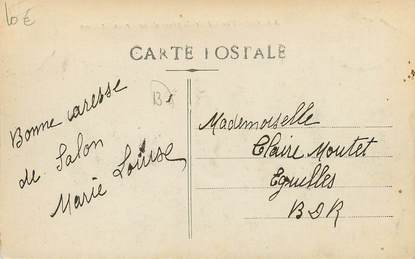 10 €
CARTE POSTALE
B
Bonne caresse
de Salon
Marie Louise
Mademoiselle
Claire Moutet
Eguilles
BDR